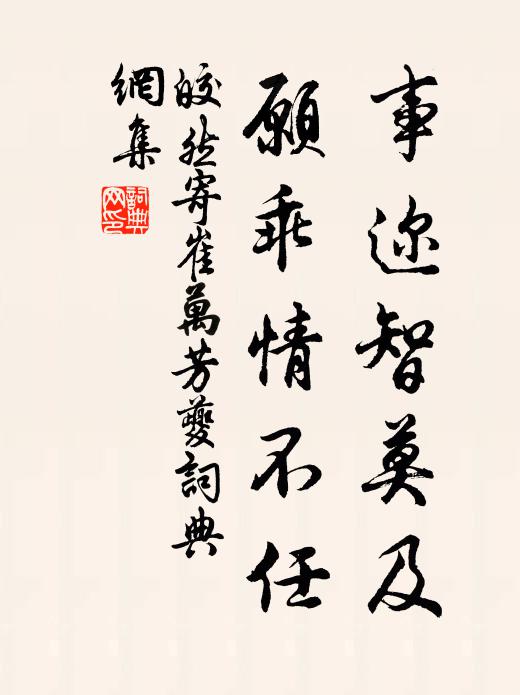 事迩智莫及
願乖情不任
皎然寄崔萬芳夔詞典
網集
詞典網印